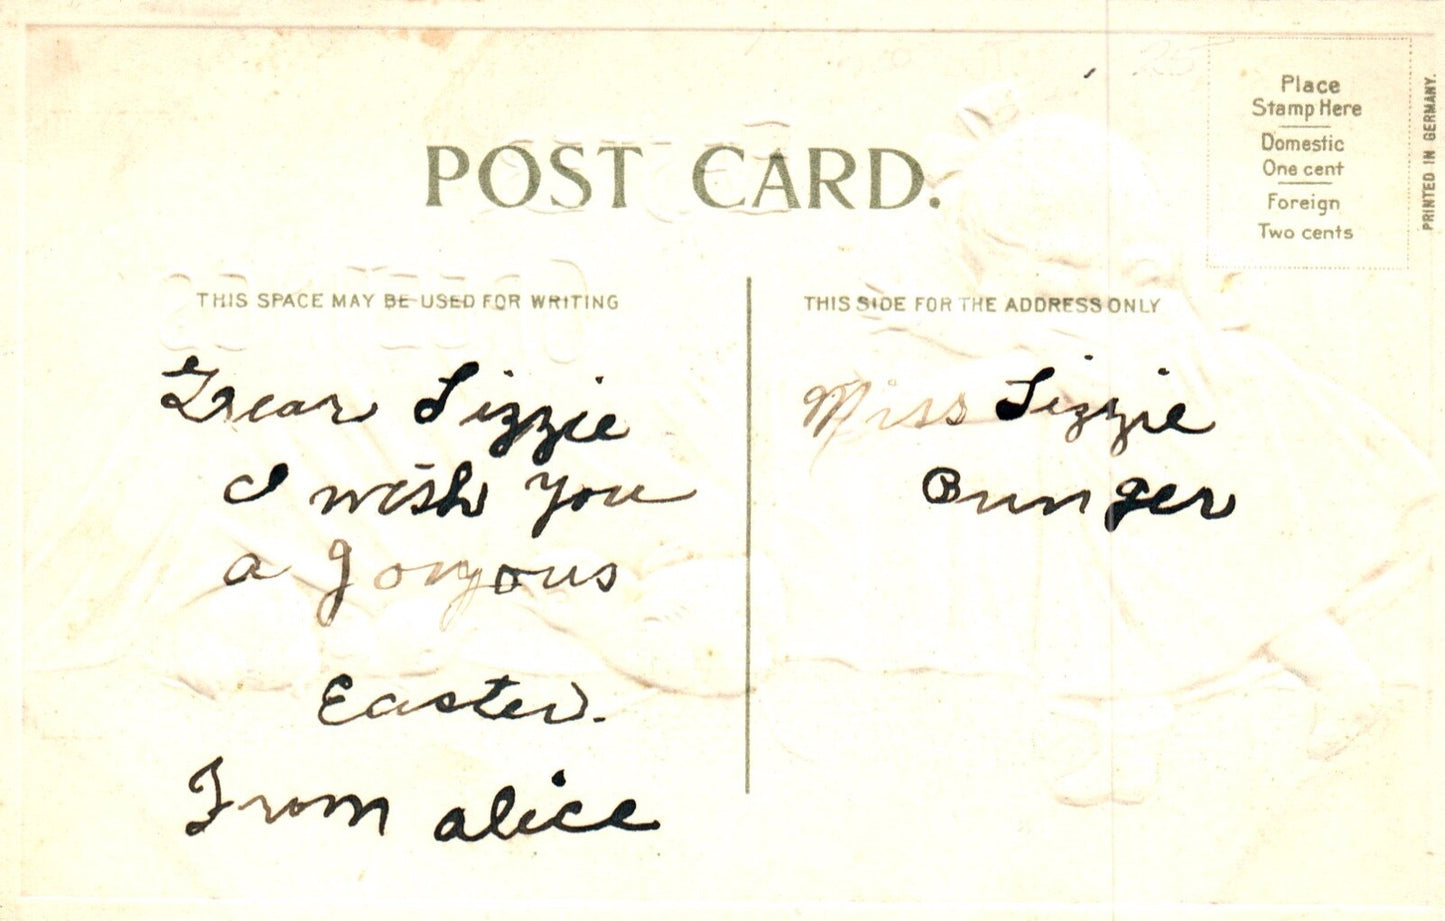 POST CARD.
Place
Stamp Here
Domestic
One cent
Foreign
Two cents
PRINTED IN GERMANY.
THIS SPACE MAY BE USED FOR WRITING
Dear Lizzie
I wish you
a Joyous
Easter.
From alice
THIS SIDE FOR THE ADDRESS ONLY
Miss Lizzie
Bunger